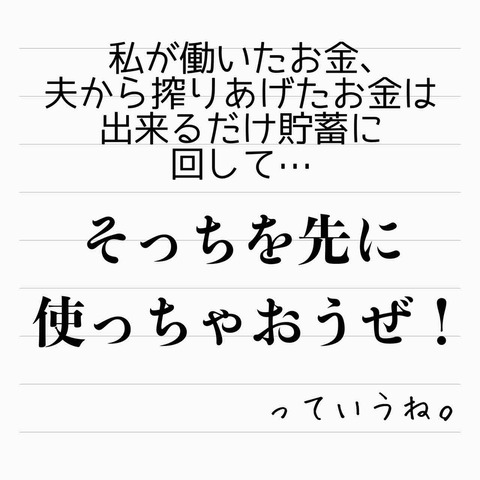 私が働いたお金、
夫から搾りあげたお金は
出来るだけ貯蓄に
回して…
そっちを先に
使っちゃおうぜ！
っていうね。